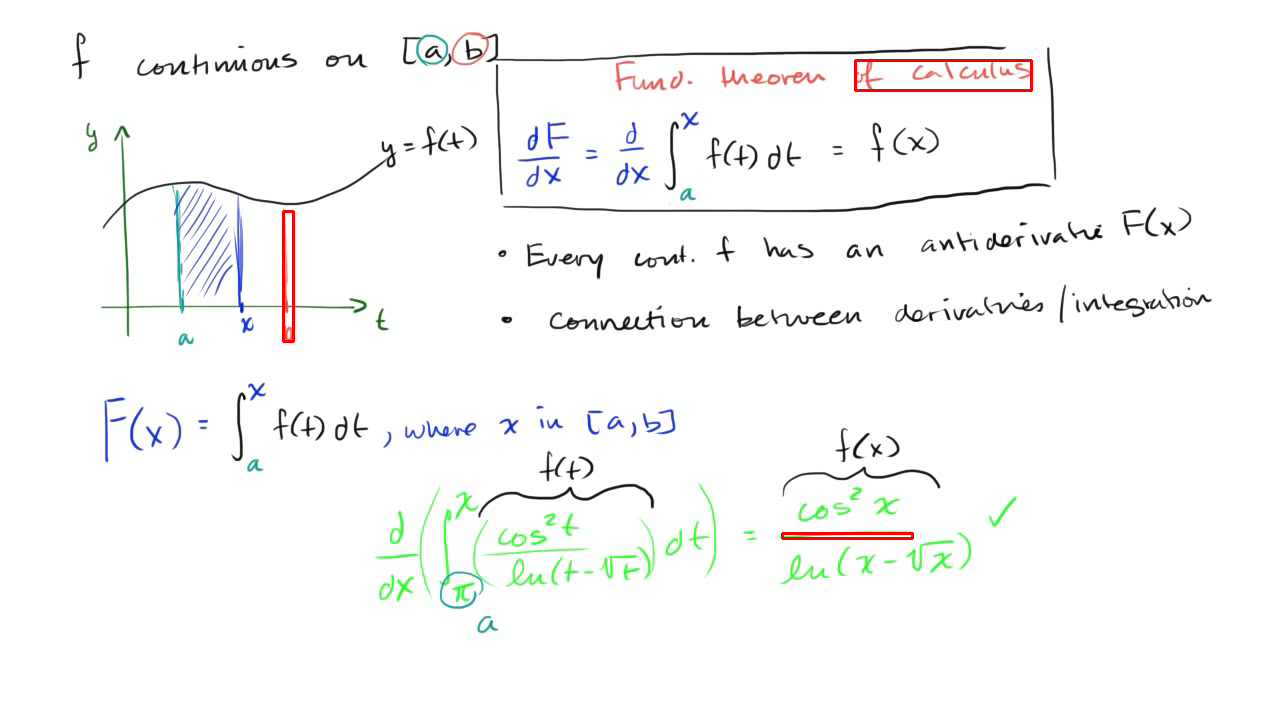 f continuous on [a, b]
Fund. theorem of calculus
dF/dx = d/dx ∫_a^x f(t) dt = f(x)
y
y = f(t)
a
x
t
• Every cont. f has an antiderivative F(x)
• connection between derivatives/integration
F(x) = ∫_a^x f(t) dt, where x in [a,b]
f(t)
f(x)
d/dx (∫_π^x (cos²t / ln(t-√t)) dt) = cos²x / ln(x-√x) ✓
a